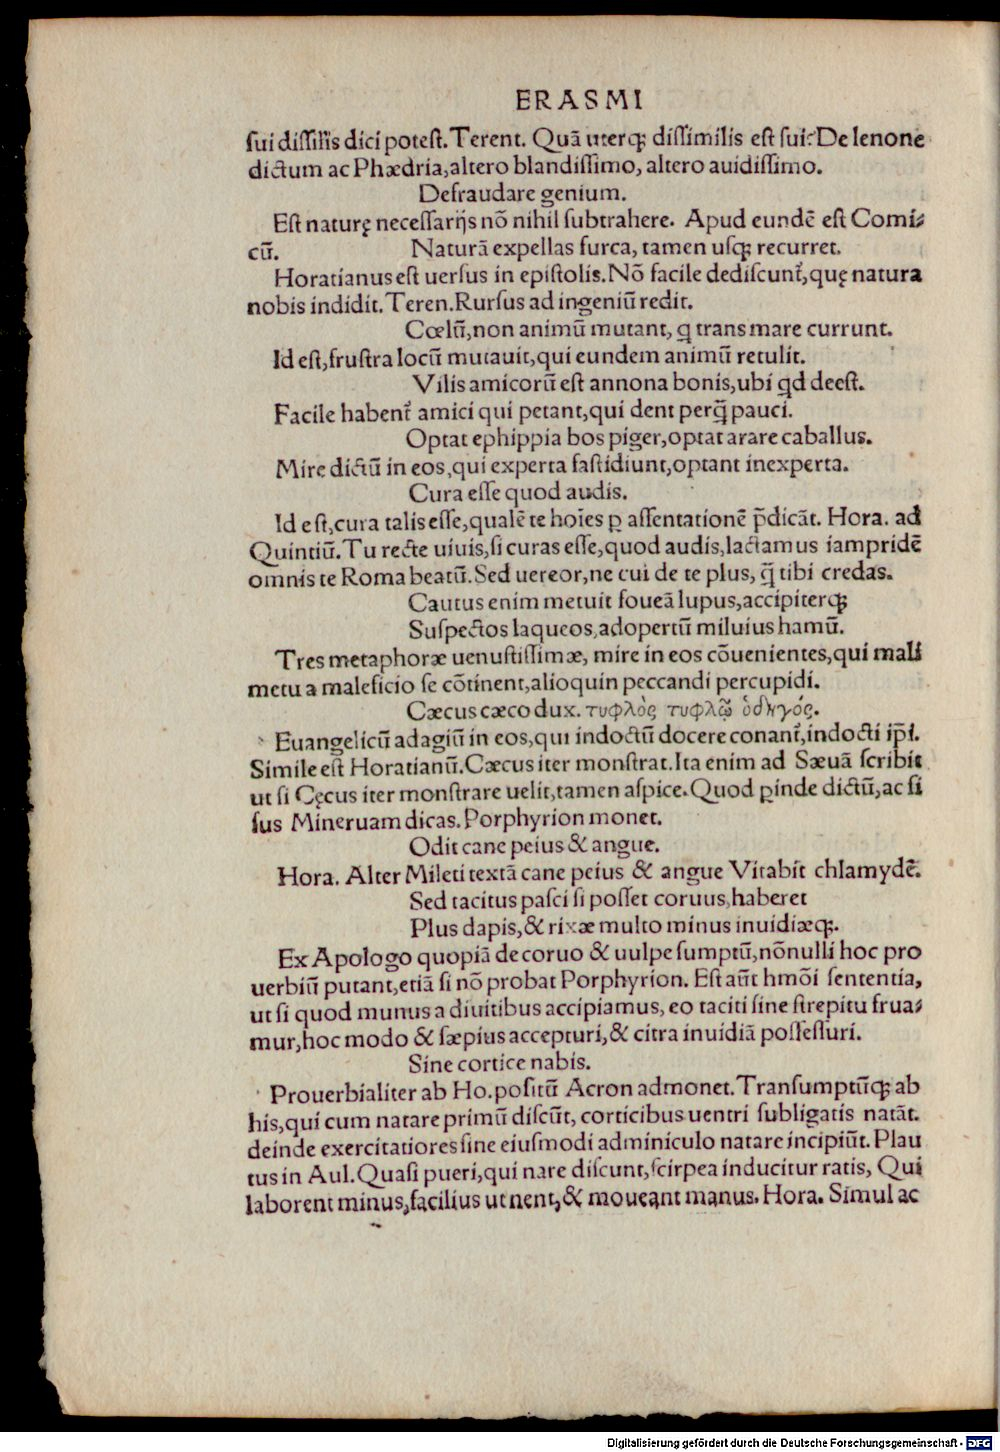 ERASMI
sui dissilis dici potest. Terent. Quã uterqꝫ dissimilis est sui? De lenone
dictum ac Phædria, altero blandissimo, altero auidissimo.
Defraudare genium.
Est naturę necessarijs nõ nihil subtrahere. Apud eundẽ est Comi⸗
cũ. Naturã expellas furca, tamen usqꝫ recurret.
Horatianus est uersus in epistolis. Nõ facile dediscunt᷑, quę natura
nobis indidit. Teren. Rursus ad ingeniũ redit.
Cœlũ, non animũ mutant, q trans mare currunt.
Id est, frustra locũ mutauit, qui eundem animũ retulit.
Vilis amicorũ est annona bonis, ubi qd deest.
Facile habent᷑ amici qui petant, qui dent perq̃ pauci.
Optat ephippia bos piger, optat arare caballus.
Mire dictũ in eos, qui experta fastidiunt, optant inexperta.
Cura esse quod audis.
Id est, cura talis esse, qualẽ te hoĩes ꝑ assentationẽ p̃dicãt. Hora. ad
Quintiũ. Tu recte uiuis, si curas esse, quod audis, lactamus iampridẽ
omnis te Roma beatũ. Sed uereor, ne cui de te plus, q̃ tibi credas.
Cautus enim metuit foueã lupus, accipiterqꝫ
Suspectos laqueos, adopertũ miluius hamũ.
Tres metaphoræ uenustissimæ, mire in eos cõuenientes, qui mali
metu a maleficio se cõtinent, alioquin peccandi percupidi.
Cæcus cæco dux. τυφλὸς τυφλῷ ὁδηγός.
Euangelicũ adagiũ in eos, qui indoctũ docere conant᷑, indocti ip̃i.
Simile est Horatianũ. Cæcus iter monstrat. Ita enim ad Sæuã scribit
ut si Cęcus iter monstrare uelit, tamen aspice. Quod ꝑinde dictũ, ac si
sus Mineruam dicas. Porphyrion monet.
Odit cane peius & angue.
Hora. Alter Mileti textã cane peius & angue Vitabit chlamydẽ.
Sed tacitus pasci si posset coruus, haberet
Plus dapis, & rixæ multo minus inuidiæqꝫ.
Ex Apologo quopiã de coruo & uulpe sumptũ, nõnulli hoc pro
uerbiũ putant, etiã si nõ probat Porphyrion. Est aũt hmõi sententia,
ut si quod munus a diuitibus accipiamus, eo taciti sine strepitu frua⸗
mur, hoc modo & sæpius accepturi, & citra inuidiã possessuri.
Sine cortice nabis.
Prouerbialiter ab Ho. positũ Acron admonet. Transumptũqꝫ ab
his, qui cum natare primũ discũt, corticibus uentri subligatis natãt.
deinde exercitatiores sine eiusmodi adminiculo natare incipiũt. Plau
tus in Aul. Quasi pueri, qui nare discunt, scirpea inducitur ratis, Qui
laborent minus, facilius ut nent, & moueant manus. Hora. Simul ac
Digitalisierung gefördert durch die Deutsche Forschungsgemeinschaft - DFG